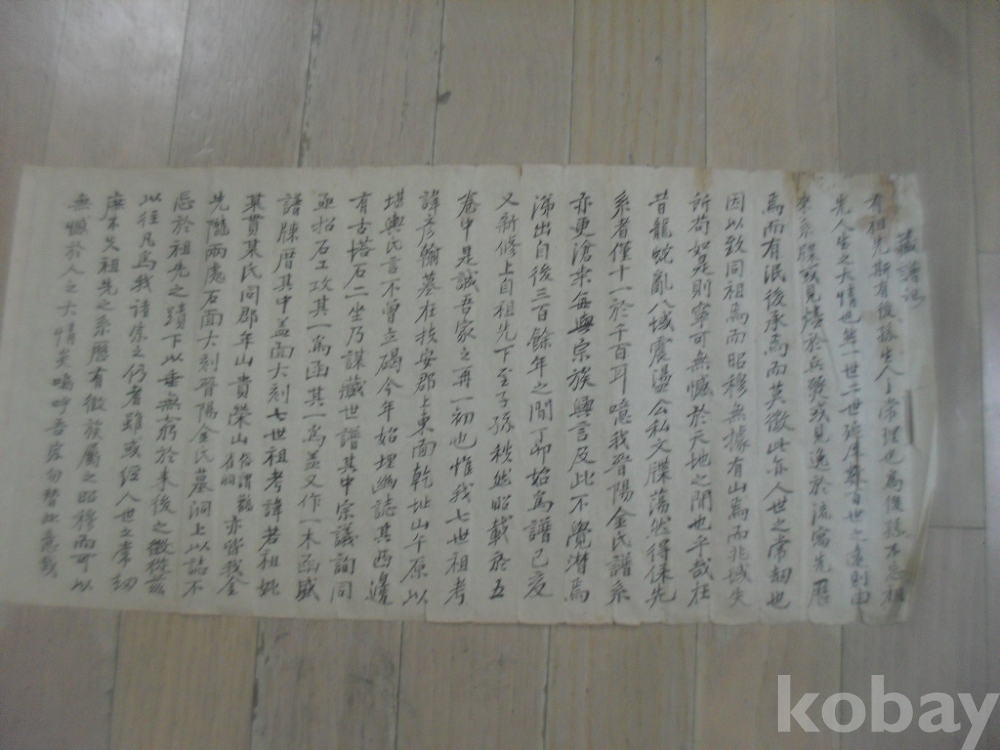 藏譜記
有祖先斯有後孫生人之常理也為後孫不忘祖
先人生之大情也然一世二世孫厚孫百世之遠則由
來系牒或見燼於兵燹或見逸於流寓先歷
焉而有泯後承焉而莫徵此亦人世之常劫也
因以致同祖焉而昭穆無據有山焉而兆域失
所苟如是則寧可無憾於天地之間也乎哉在
昔龍蛇亂八域震盪公私文牒蕩然得保先
系者僅十一於千百耳噫我晉陽金氏譜系
亦更滄桑每與宗族興言及此不覺淋焉
涕出自後三百餘年之間丁卯始為譜已亥
又新修上自祖先下至子孫秩然昭載於五
卷中是誠吾家之再一初也惟我七世祖考
諱彦翰墓在扶安郡上東面乾址山午原以
堪輿氏言不曾立碣今年始埋幽誌其西邊
有古塔石二坐乃謀藏世譜其中宗議詢同
亟招石工攻其一為函其一為蓋又作一木函盛
譜牒厝其中蓋面大刻七世祖考諱若祖妣
某貫某氏同郡年山貴榮山俗謂鵝 亦皆我金
先隴兩處石面大刻晉陽金氏墓洞上以誌不
忘於祖先之蹟下以垂無窮於來後之徵從玆
以往凡為我諸宗之仍者雖或經人世之常劫
庶不失祖先之系歷有徵族屬之昭穆而可以
無憾於人之大情矣嗚呼吾宗勿替此意哉
kobay